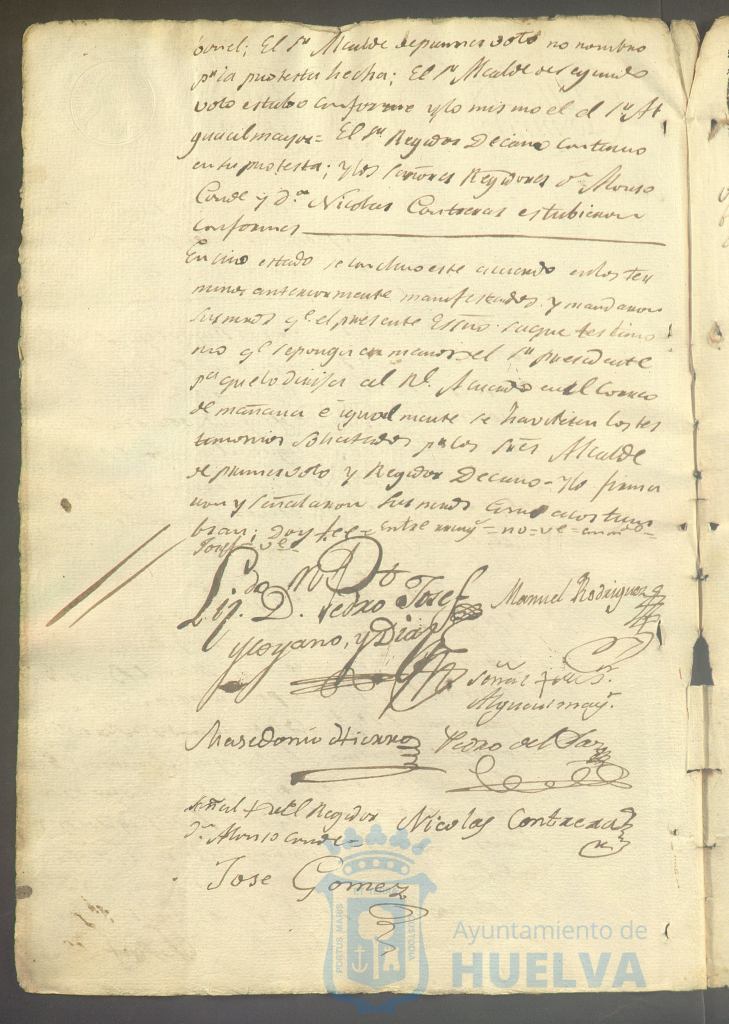 El Sr Alcalde de primer voto no nombro
pr la protesta hecha; El Sr Alcalde de segundo
voto estubo conforme y lo mismo el Sr Al
guacil mayor= El Sr Regidor Decano continuo
en su protesta; y los señores Regidores Dn Alonso
Conde y Dn Nicolas Contreras estubieron
conformes
En cuio estado se concluio este acuerdo en los ter
minos anteriormente manifestados y mandaron
sus mrds qe el presente Essno saque testimo
nio qe se ponga en manos del Sr presidente
pa que lo dirija al Rl Acuerdo en el Correo
de mañana e igualmente se faciliten los tes
timonios solicitados pr los Sres Alcalde
de primer voto y Regidor Decano= y lo firma
ron y señalaron sus mrds como acostum
bran; doy fee= Entre
Josef
Lizdo Dn Pedro Josef Manuel Rodriguez
y Loyano, y Diaz
Señal + del Sr
Alguacil mayr
Masedonio Hierro Pedro del Paz
Señal + del Regidor Nicolas Contreras
Dn Alonso Conde=
Jose Gomez
PORTUS MARIS CUSTODIA
Ayuntamiento de
HUELVA